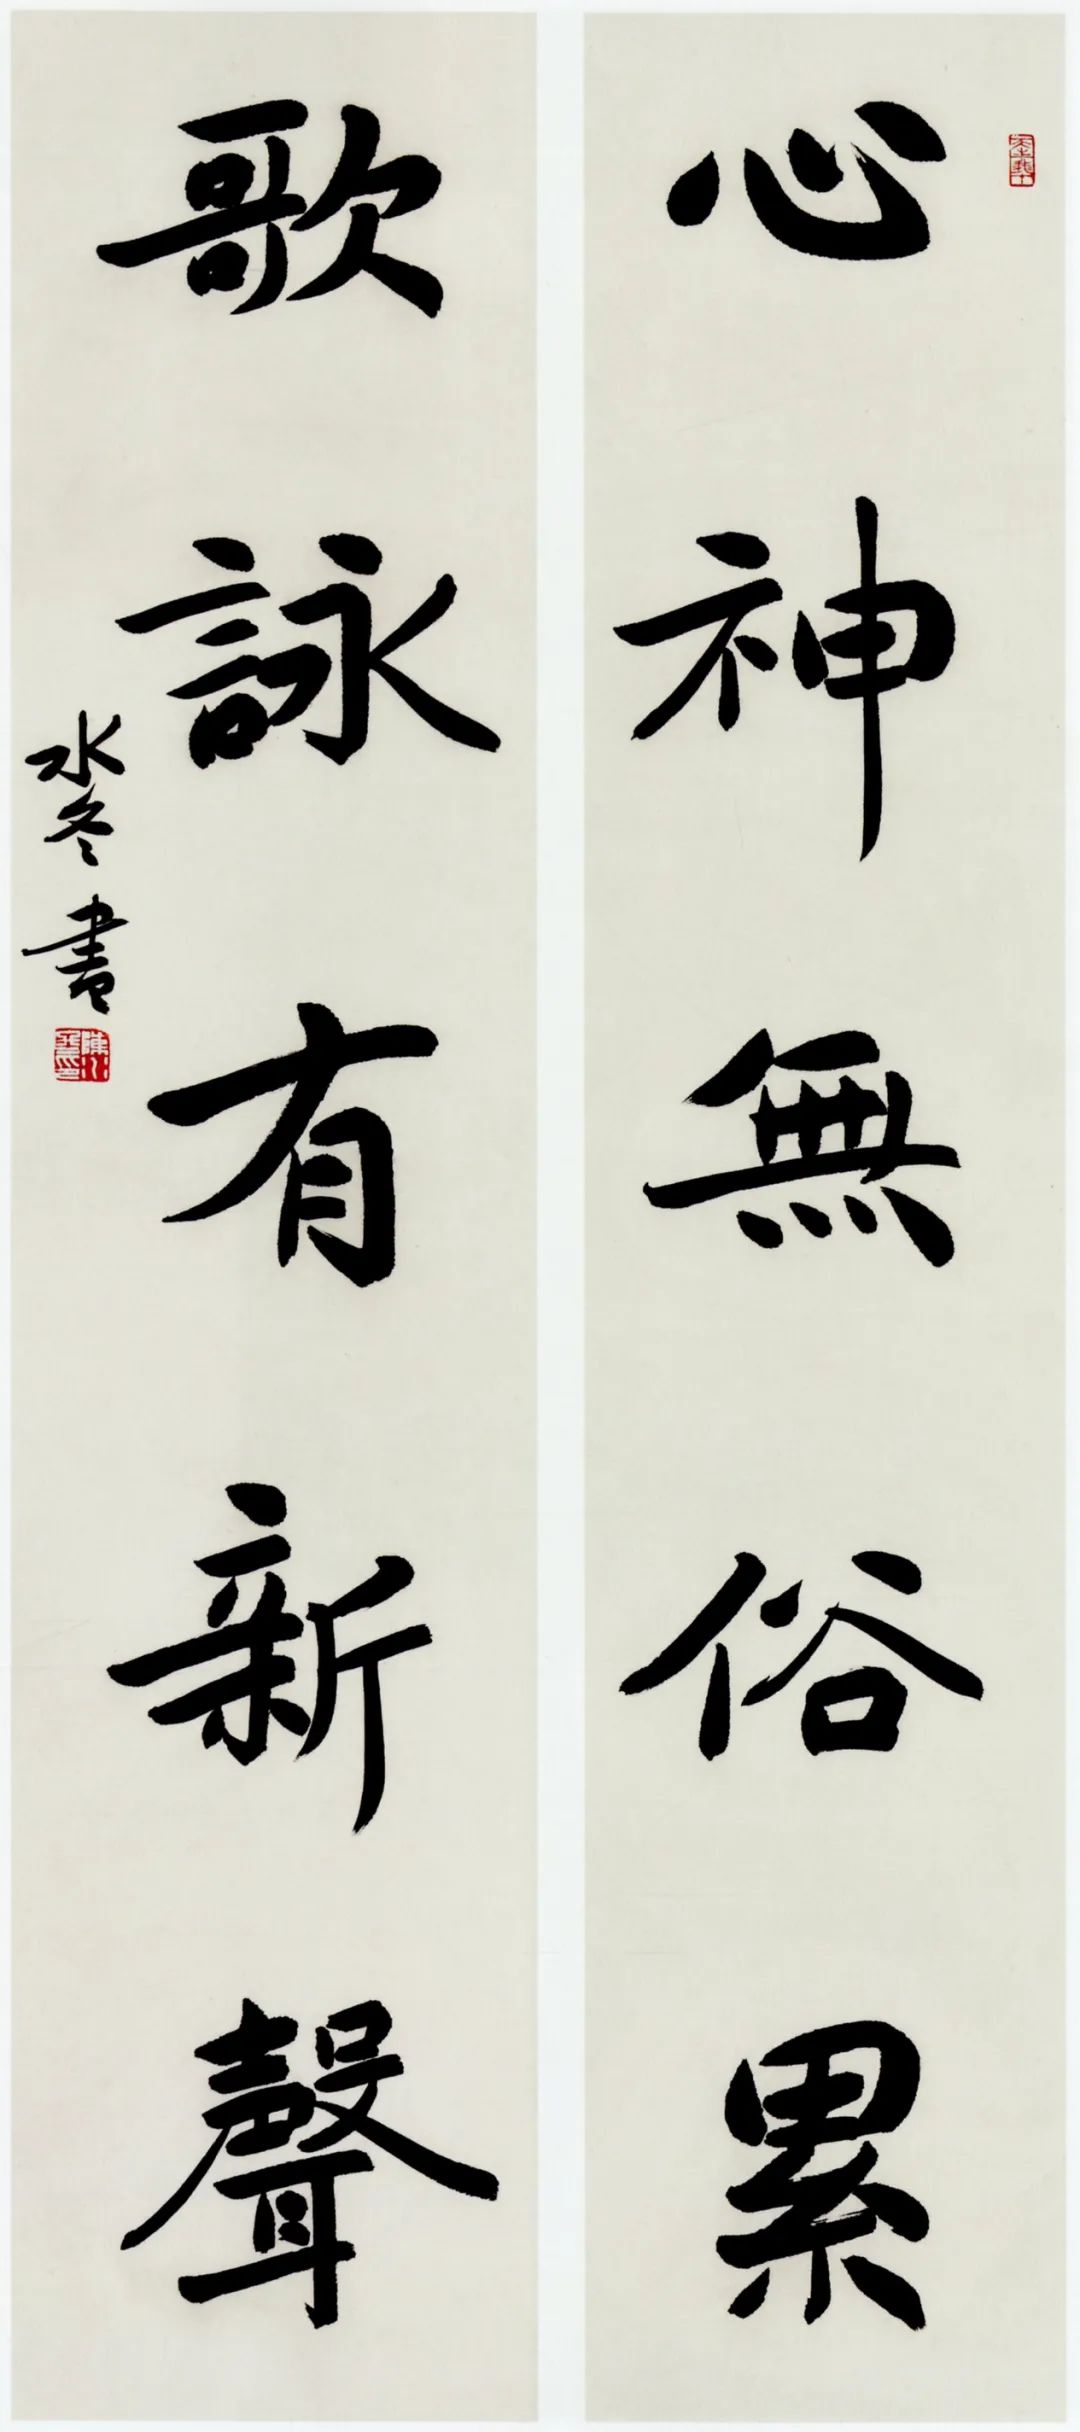 心神無俗累
歌詠有新聲
水冬書